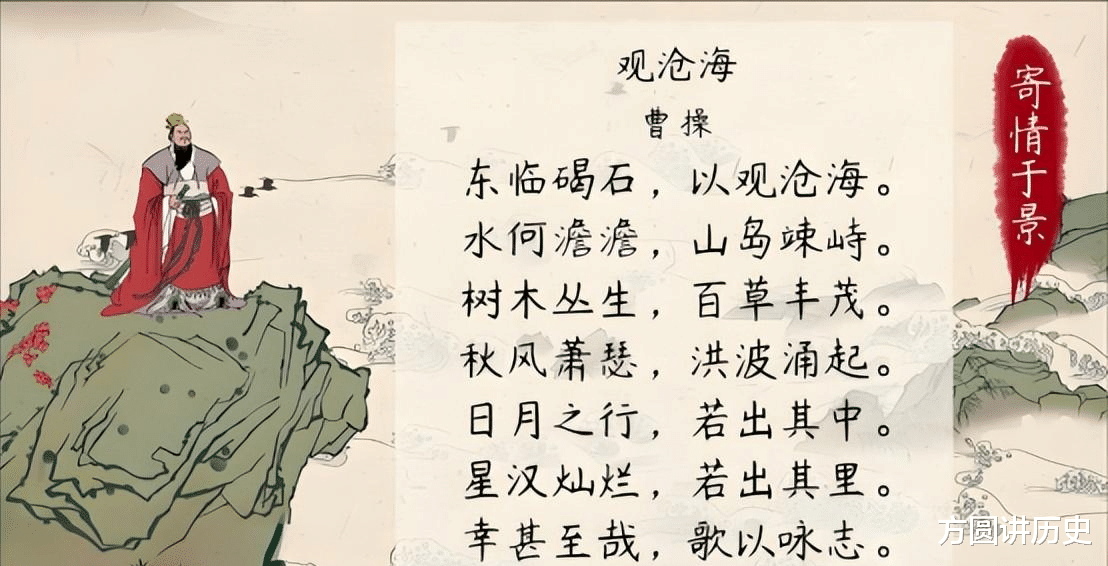 观沧海
曹操
东临碣石，以观沧海。
水何澹澹，山岛竦峙。
树木丛生，百草丰茂。
秋风萧瑟，洪波涌起。
日月之行，若出其中。
星汉灿烂，若出其里。
幸甚至哉，歌以咏志。
寄情于景
方圆讲历史